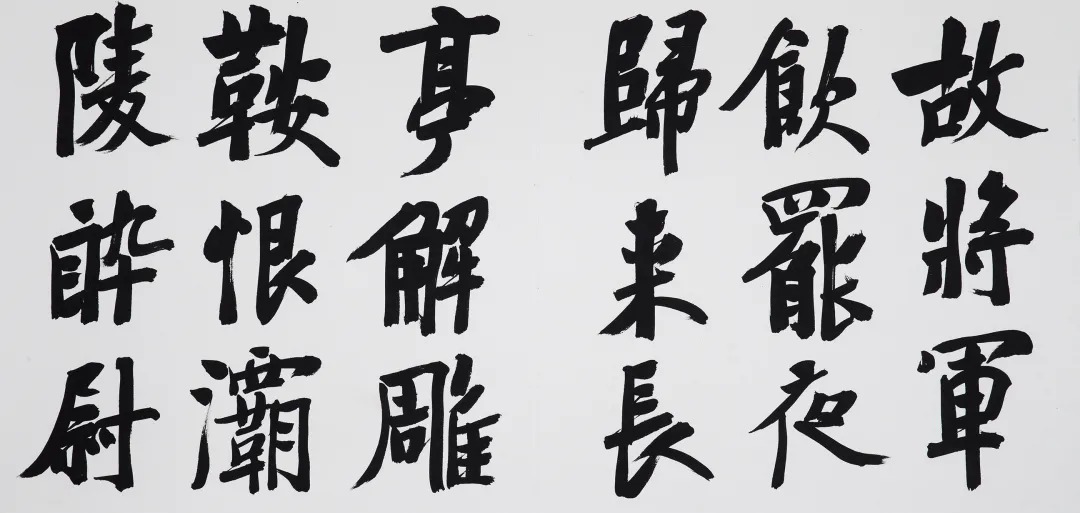 故將軍
飲罷夜
歸来長
亭解雕
鞍恨灞
陵醉尉